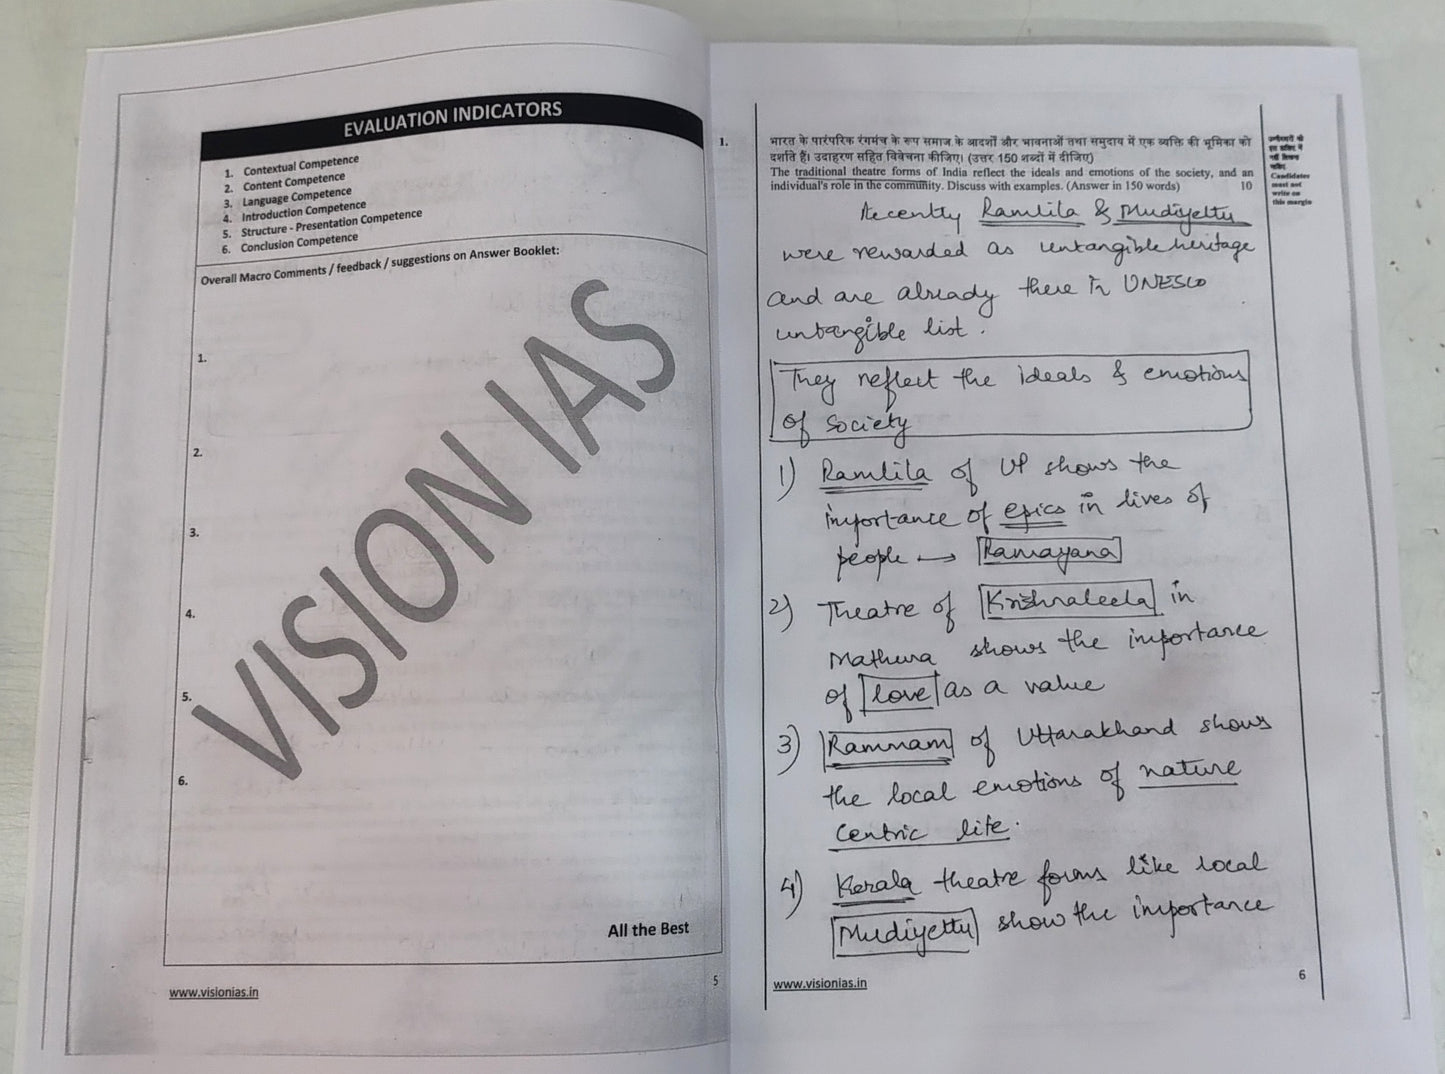 EVALUATION INDICATORS
1. Contextual Competence
2. Content Competence
3. Language Competence
4. Introduction Competence
5. Structure - Presentation Competence
6. Conclusion Competence
Overall Macro Comments / feedback / suggestions on Answer Booklet:
1.
2.
3.
4.
5.
6.
VISION IAS
All the Best
www.visionias.in
5
1.
भारत के पारंपरिक रंगमंच के रूप समाज के आदर्शों और भावनाओं तथा समुदाय में एक व्यक्ति की भूमिका को
दर्शाते हैं। उदाहरण सहित विवेचना कीजिए। (उत्तर 150 शब्दों में दीजिए)
The traditional theatre forms of India reflect the ideals and emotions of the society, and an
individual's role in the community. Discuss with examples. (Answer in 150 words) 10
Candidates
must not
write on
this margin
Recently Ramlila & Mudiyettu
were rewarded as untangible heritage
and are already there in UNESCO
untangible list.
They reflect the ideals & emotions
of society
1) Ramlila of UP shows the
importance of epics in lives of
people → Ramayana
2) Theatre of Krishnaleela in
Mathura shows the importance
of love as a value
3) Ramnam of Uttarakhand shows
the local emotions of nature
centric life.
4) Kerala theatre forms like local
Mudiyettu show the importance
www.visionias.in
6